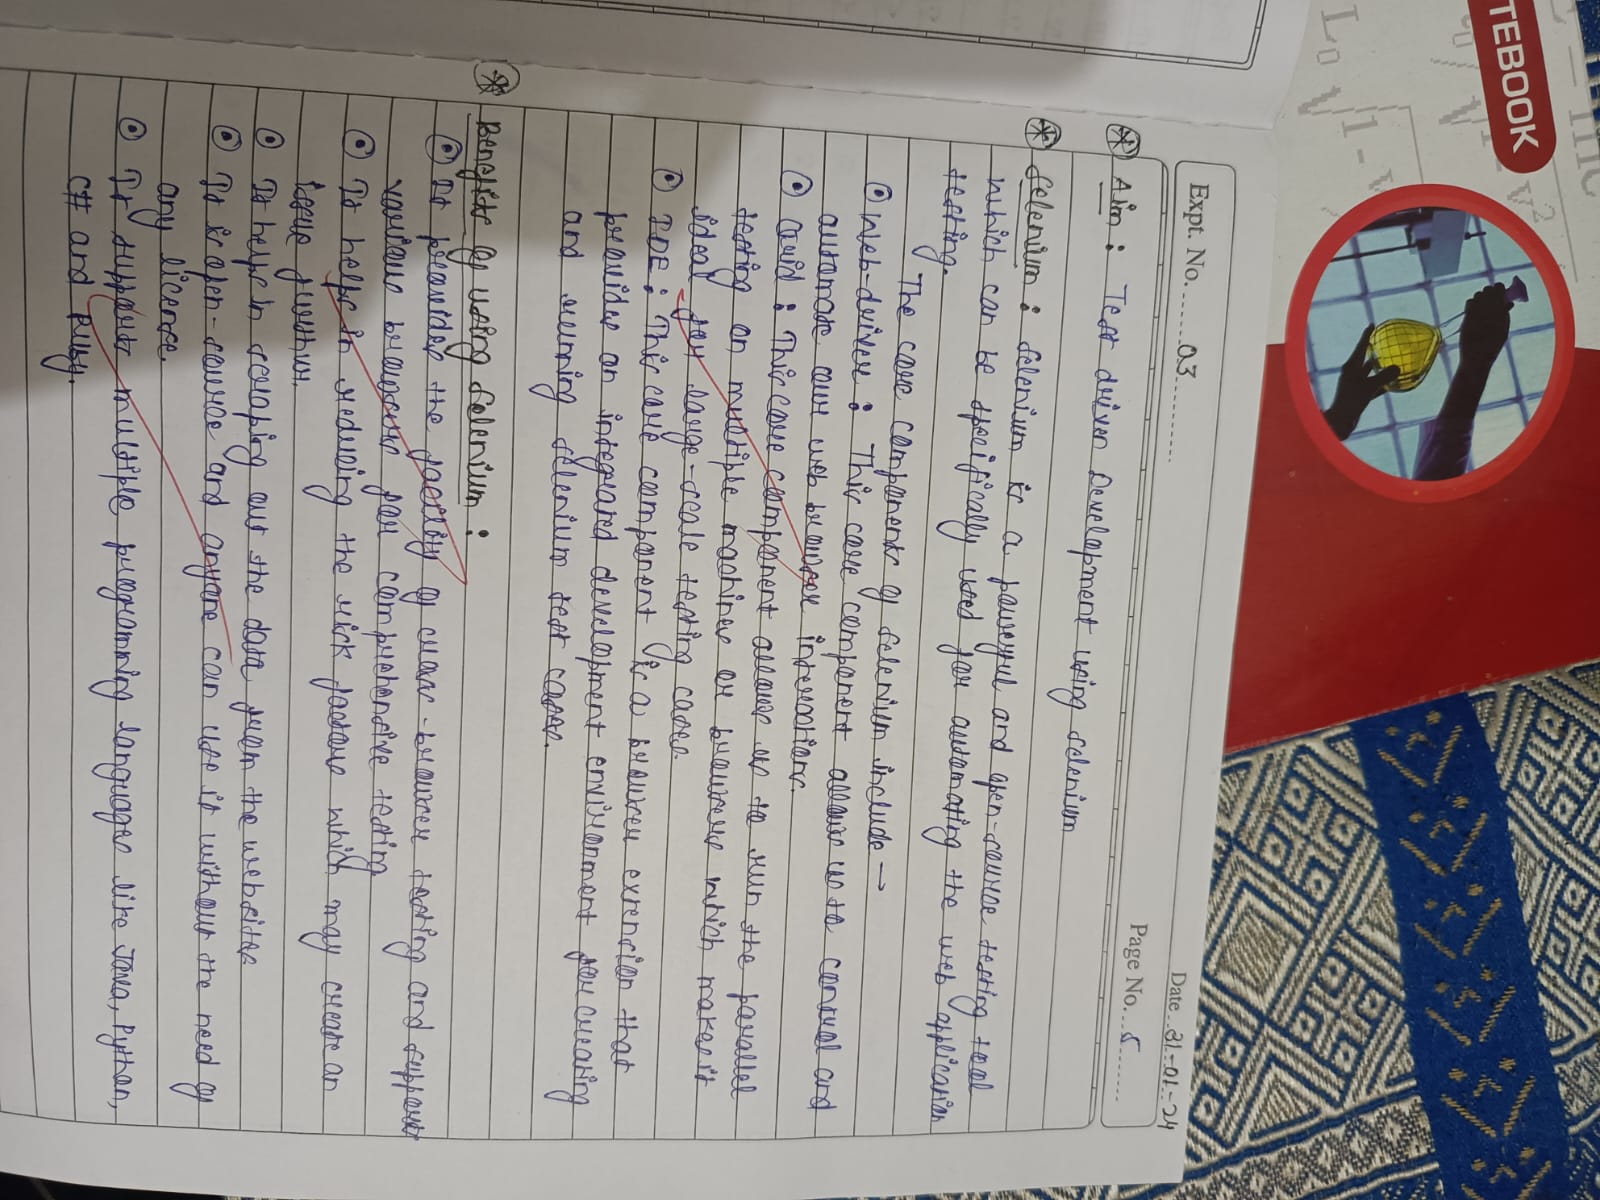 NOTEBOOK
Expt. No. 03
Date 31-01-24
Page No. 5
Aim : Test driven Development using selenium
Selenium : Selenium is a powerful and open-source testing tool
which can be specifically used for automating the web application
testing.
The core components of Selenium include →
Web-driver : This core component allows us to control and
automate our web browser interactions.
Grid : This core component allows us to run the parallel
testing on multiple machines or browsers which makes it
ideal for large-scale testing cases.
IDE : This core component is a browser extension that
provides an integrated development environment for creating
and running selenium test cases.
Benefits of using Selenium :
It provides the facility of cross-browser testing and support
various browsers for comprehensive testing
It helps in reducing the risk factors which may create an
issue further.
It helps in scraping out the data from the websites
It is open-source and anyone can use it without the need of
any licence.
It support multiple programming languages like Java, Python,
C# and Ruby.